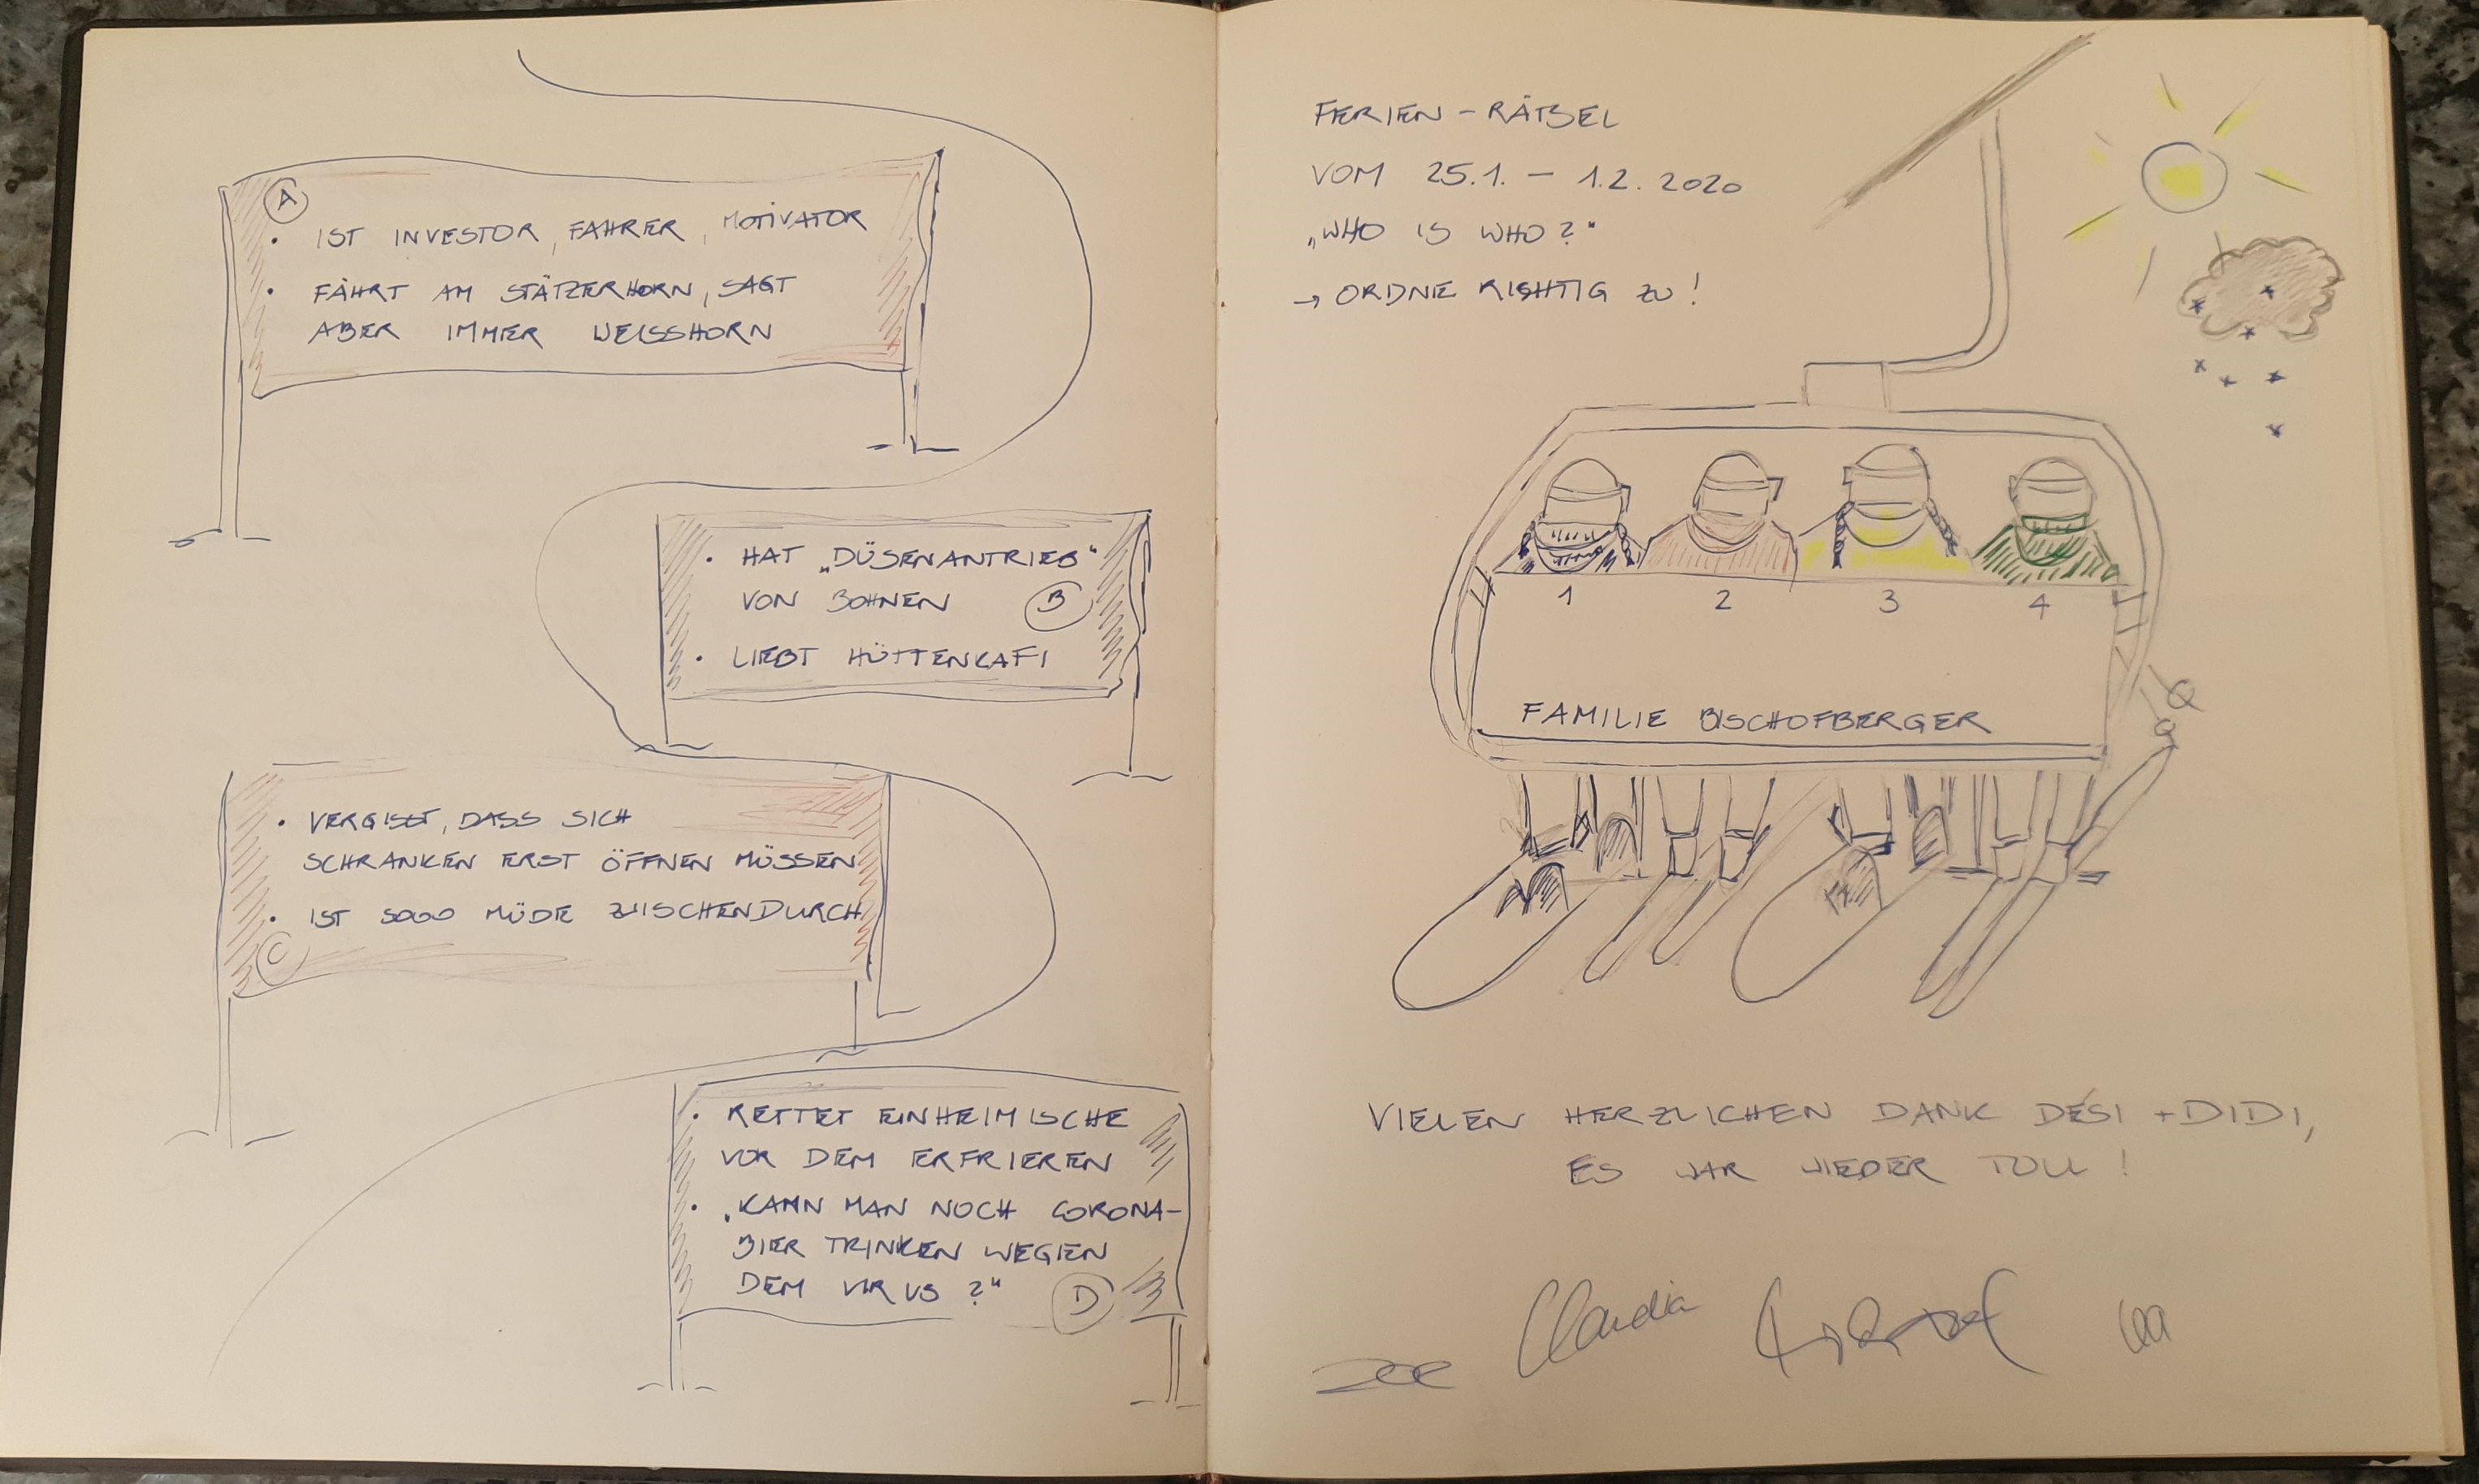 A
• IST INVESTOR, FAHRER, MOTIVATOR
• FÄHRT AM STÄTZERHORN, SAGT
ABER IMMER WEISSHORN
• HAT „DÜSENANTRIEB“
VON BOHNEN
B
• LIEBT HÜTTENKAFI
• VERGISST, DASS SICH
SCHRANKEN ERST ÖFFNEN MÜSSEN
• IST SOOO MÜDE ZWISCHENDURCH
C
• RETTET EINHEIMISCHE
VOR DEM ERFRIEREN
• „KANN MAN NOCH CORONA-
BIER TRINKEN WEGEN
DEM VIRUS ?“
D
FERIEN - RÄTSEL
VOM 25.1. - 1.2. 2020
„WHO IS WHO?“
→ ORDNE RICHTIG ZU!
1 2 3 4
FAMILIE BISCHOFBERGER
VIELEN HERZLICHEN DANK DÉSI + DIDI,
ES WAR WIEDER TOLL !
Claudia